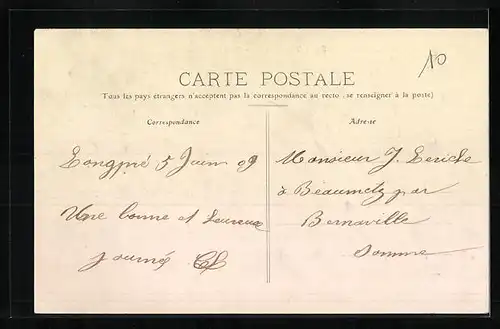 10
CARTE POSTALE
Tous les pays étrangers n'acceptent pas la correspondance au recto (se renseigner à la poste)
Correspondance
Adresse
Longpré 5 Juin 09
Une bonne et heureuse
journée
Monsieur J. Leriche
à Beaumetz par
Bernaville
Somme